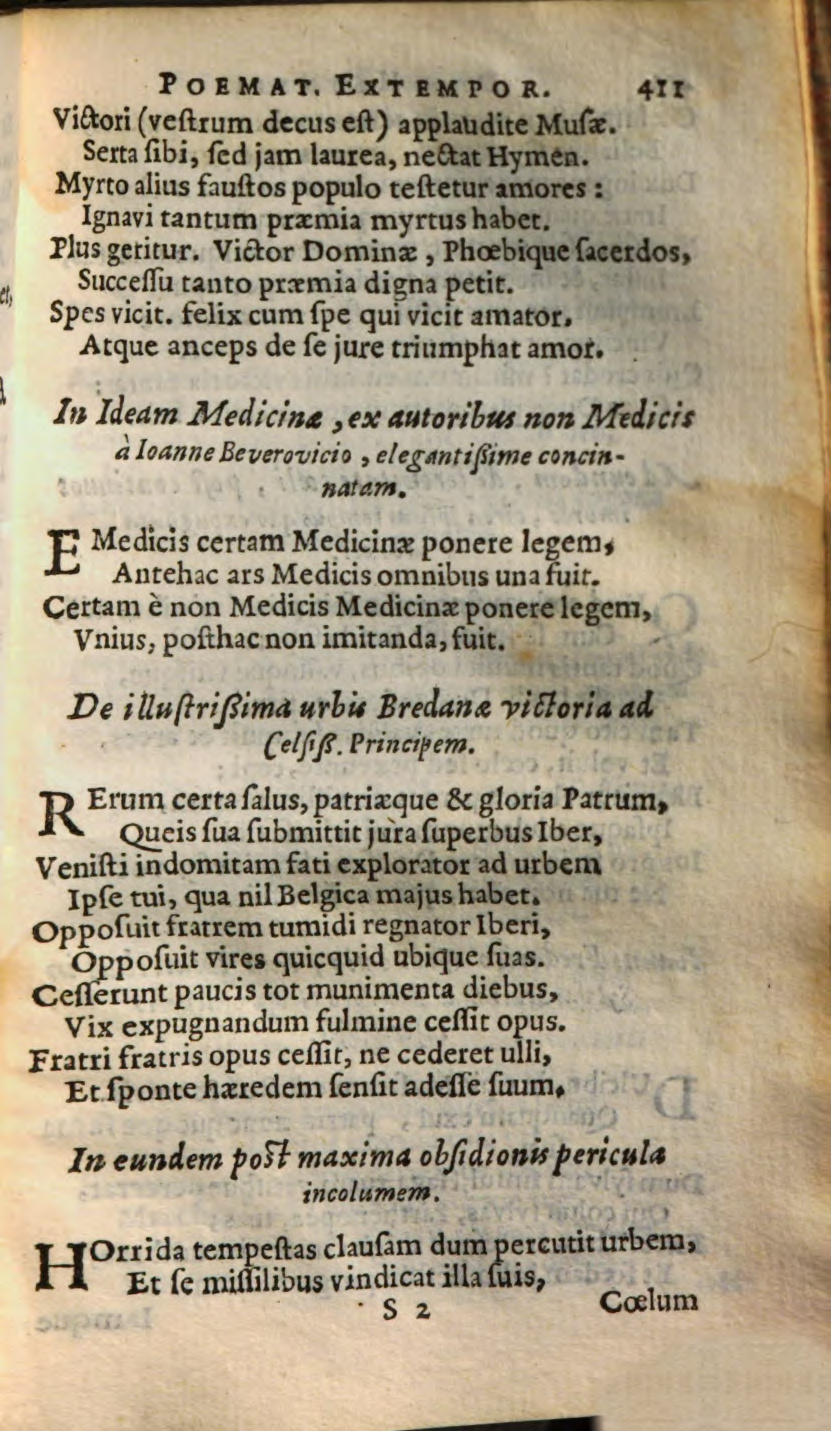 POEMAT. EXTEMPOR. 411
Victori (veſtrum decus eſt) applaudite Muſæ.
Serta ſibi, ſed jam laurea, nectat Hymen.
Myrto alius fauſtos populo teſtetur amores:
Ignavi tantum præmia myrtus habet.
Plus geritur. Victor Dominæ, Phœbique ſacerdos,
Succeſſu tanto præmia digna petit.
Spes vicit. felix cum ſpe qui vicit amator.
Atque anceps de ſe jure triumphat amor.
In Ideam Medicinæ, ex autoribus non Medicis
à Ioanne Beverovicio, elegantiſsime concin-
natam.
E Medicis certam Medicinæ ponere legem,
Antehac ars Medicis omnibus una fuit.
Certam è non Medicis Medicinæ ponere legem,
Vnius, poſthac non imitanda, fuit.
De illuſtriſsima urbis Bredanæ victoria ad
Celſiſs. Principem.
RErum certa ſalus, patriæque & gloria Patrum,
Queis ſua ſubmittit jura ſuperbus Iber,
Veniſti indomitam fati explorator ad urbem
Ipſe tui, qua nil Belgica majus habet.
Oppoſuit fratrem tumidi regnator Iberi,
Oppoſuit vires quicquid ubique ſuas.
Ceſſerunt paucis tot munimenta diebus,
Vix expugnandum fulmine ceſſit opus.
Fratri fratris opus ceſſit, ne cederet ulli,
Et ſponte hæredem ſenſit adeſſe ſuum.
In eundem poſt maxima obſidionis pericula
incolumem.
HOrrida tempeſtas clauſam dum percutit urbem,
Et ſe miſſilibus vindicat illa ſuis,
S 2 Cœlum